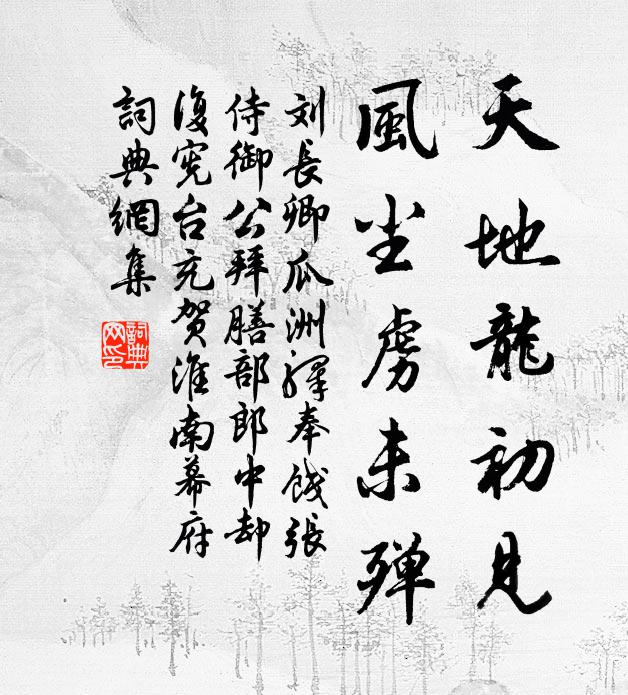 天地龍初見
風尘虜未殫
刘長卿瓜洲驛奉餞張
侍御公拜膳部郎中却
復宪台充贺淮南幕府
詞典網集
詞典
网印